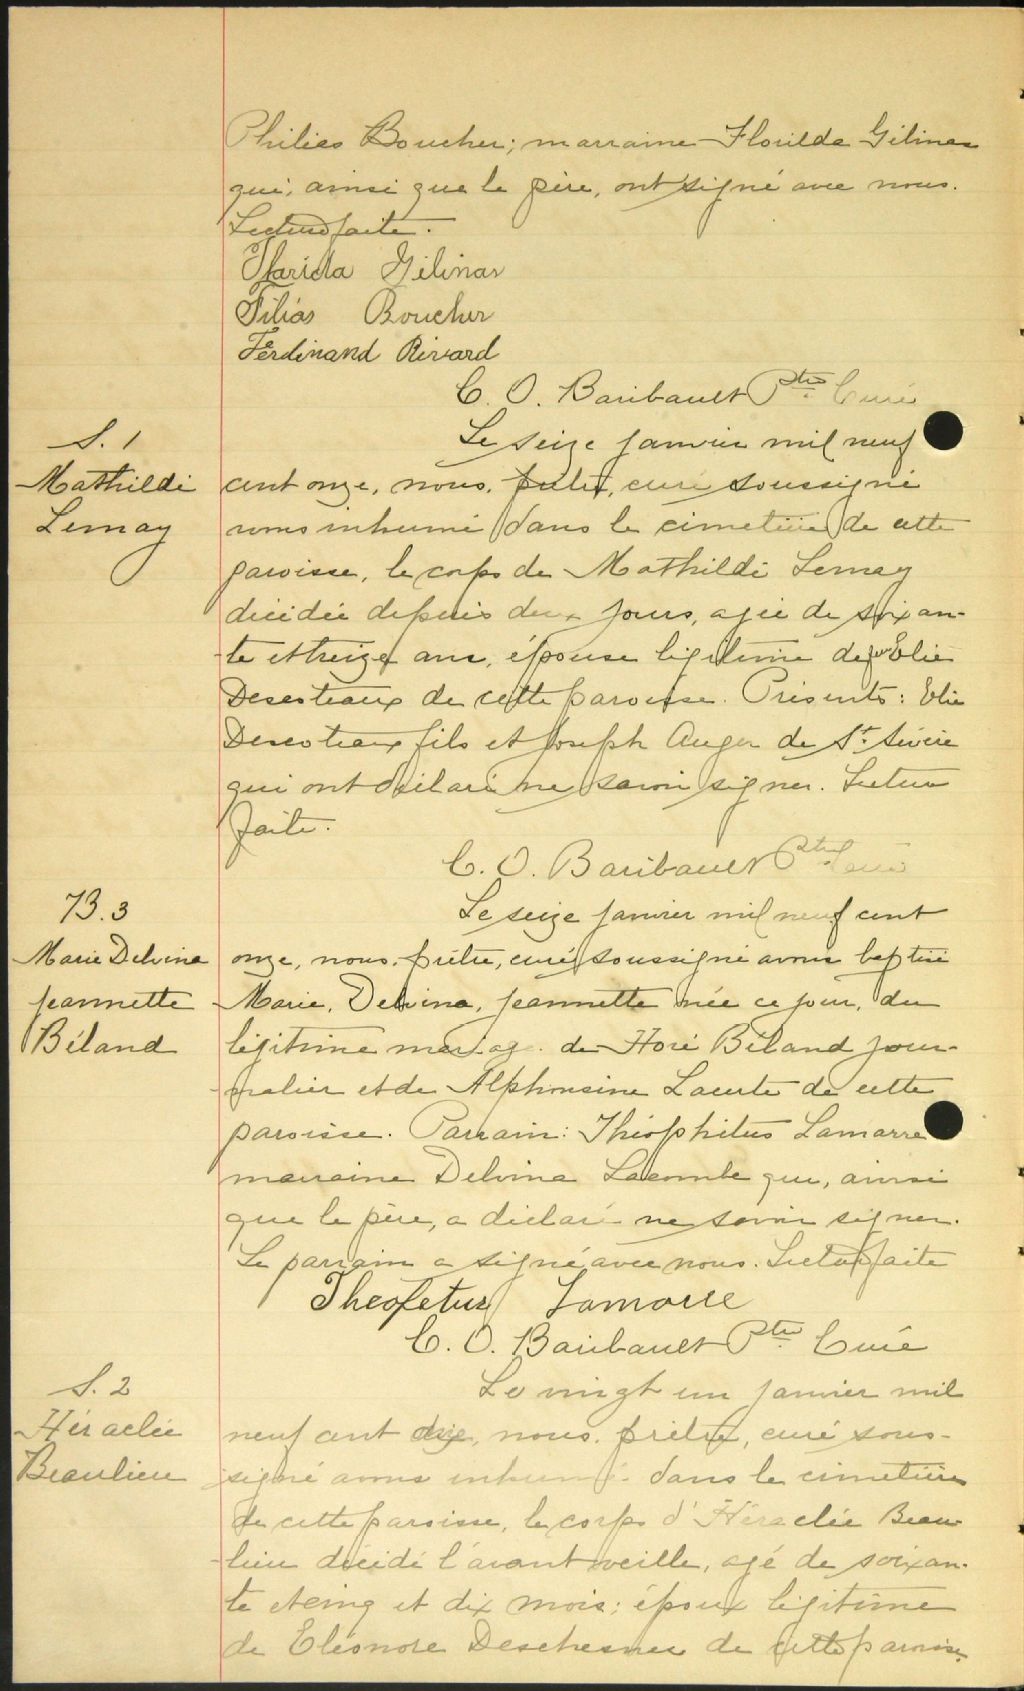 Philias Boucher; marraine Florilda Gélinas
qui, ainsi que le père, ont signé avec nous.
Lecture faite.
Florida Gélinas
Filias Boucher
Ferdinand Rivard
C. O. Baribault Ptre Curé
S. 1
Mathilde
Lemay
Le seize janvier mil neuf
cent onze, nous, prêtre, curé soussigné
avons inhumé dans le cimetière de cette
paroisse, le corps de Mathilde Lemay
décédée depuis deux jours, agée de soixan-
te et treize ans, épouse légitime de feu Elie
Descoteaux de cette paroisse. Présents: Elie
Descoteaux fils et Joseph Auger de St. Sévère
qui ont déclaré ne savoir signer. Lecture
faite.
C. O. Baribault Ptre Curé
B. 3
Marie Delvina
Jeannette
Béland
Le seize janvier mil neuf cent
onze, nous, prêtre, curé soussigné avons baptisé
Marie, Delvina, Jeannette née ce jour, du
légitime mariage de Horé Béland jour-
nalier et de Alphonsine Lacerte de cette
paroisse. Parrain: Théophilus Lamarre
marraine Delvina Lacombe qui, ainsi
que le père, a déclaré ne savoir signer.
Le parrain a signé avec nous. Lecture faite
Theofetus Lamarre
C. O. Baribault Ptre Curé
S. 2
Héraclée
Beaulieu
Le vingt un janvier mil
neuf cent onze, nous, prêtre, curé sous-
signé avons inhumé dans le cimetière
de cette paroisse, le corps d'Héraclée Beau-
lieu décédé l'avant veille, agé de soixan-
te et cinq et dix mois; époux légitime
de Eléonore Deschesnes de cette paroisse.